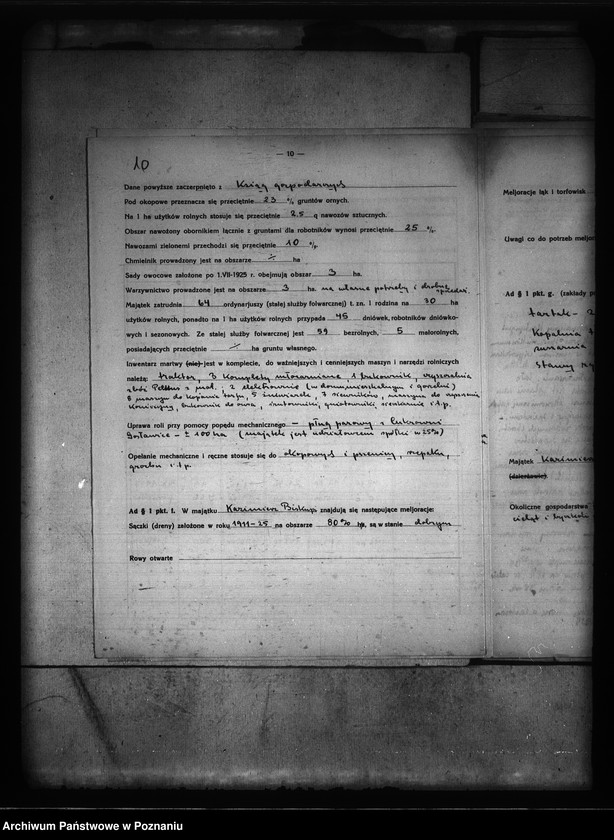 10
— 10 —
Dane powyższe zaczerpnięto z Ksiąg gospodarczych
Pod okopowe przeznacza się przeciętnie 23 % gruntów ornych.
Na 1 ha użytków rolnych stosuje się przeciętnie 2.5 q nawozów sztucznych.
Obszar nawożony obornikiem łącznie z gruntami dla robotników wynosi przeciętnie 25 %.
Nawozami zielonemi przechodzi się przeciętnie 10 %.
Chmielnik prowadzony jest na obszarze ha
Sady owocowe założone po 1.VII-1925 r. obejmują obszar 3 ha.
Warzywnictwo prowadzone jest na obszarze 3 ha. na własne potrzeby i drobną sprzedaż.
Majątek zatrudnia 64 ordynarjuszy (stałej służby folwarcznej) t. zn. 1 rodzina na 30 ha
użytków rolnych, ponadto na 1 ha użytków rolnych przypada 45 dniówek, robotników dniówko-
wych i sezonowych. Ze stałej służby folwarcznej jest 59 bezrolnych, 5 małorolnych,
posiadających przeciętnie ha gruntu własnego.
Inwentarz martwy (nie) jest w komplecie, do ważniejszych i cenniejszych maszyn i narzędzi rolniczych
należą: traktor, 3 komplety młocarniane, 1 bukownik,
2 elektrownie (w dom i gorzelni)
8 maszyn do kopania 5 żniwiarek, 7 siewników, maszyny do
i t.p.
Uprawa roli przy pomocy popędu mechanicznego — pług parowy z Cukrowni
Gostawice — ± 100 ha (majątek jest udziałowcem spółki w 25%)
Opełanie mechaniczne i ręczne stosuje się do okopowych i pszenicy, rzepaku,
grochu i t.p.
Ad § 1 pkt. f. W majątku Kazimierz Biskupi znajdują się następujące meljoracje:
Sączki (dreny) założone w roku 1911-25 na obszarze 80% ha, są w stanie dobrym
Rowy otwarte
Meljoracje łąk i torfowisk
Uwagi co do potrzeb meljor
Ad § 1 pkt. g. (zakłady p
tartak - 2
Kopalnia
suszarnia
Majątek Kazimierz
(dzierżawie)
Okoliczne gospodarstwa
Archiwum Państwowe w Poznaniu